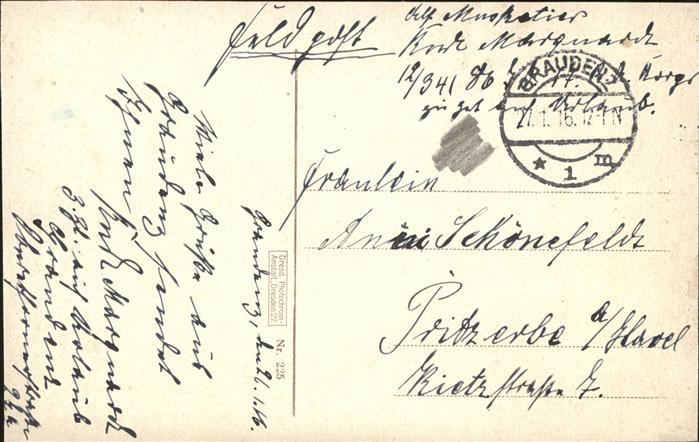 Feldpost
Abs. Musketier
Kurt Marquardt
12/341 86
zu zt auf Urlaub.
GRAUDENZ
27.1.16.12-1 N
* 1 m
Fräulein
Anni Schönefeldt
Pritzerbe a/Havel
Kietzstraße 7.
Dresd. Photochrom-
Anstalt, Dresden 27.
Nr. 225
Graudenz, den 26.1.16.
Viele Grüße aus
Graudenz sendet
Ihnen Kurt Marquardt
z. Zt. auf Urlaub
Graudenz